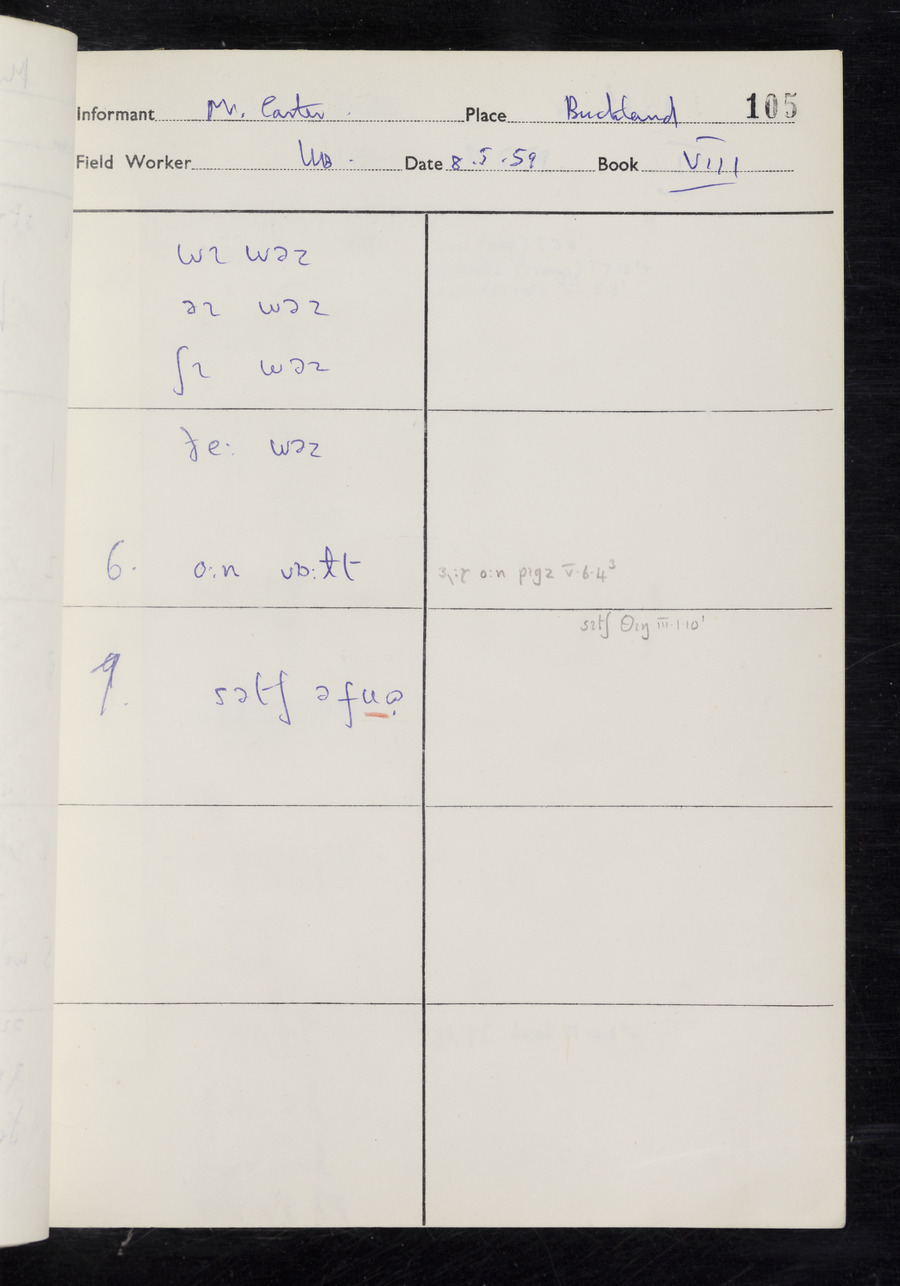 Informant Mr. Carter . Place Buckland 105
Field Worker WB . Date 8.5.59 Book VIII
wɪ wəz
əɪ wəz
ʃɪ wəz
ðe: wəz
6. o:n vɒ:ɫt
o:n pɪgz V.6.4³
sɪtʃ θɪŋ III.1.10¹
9. sətʃ ə fuə̣